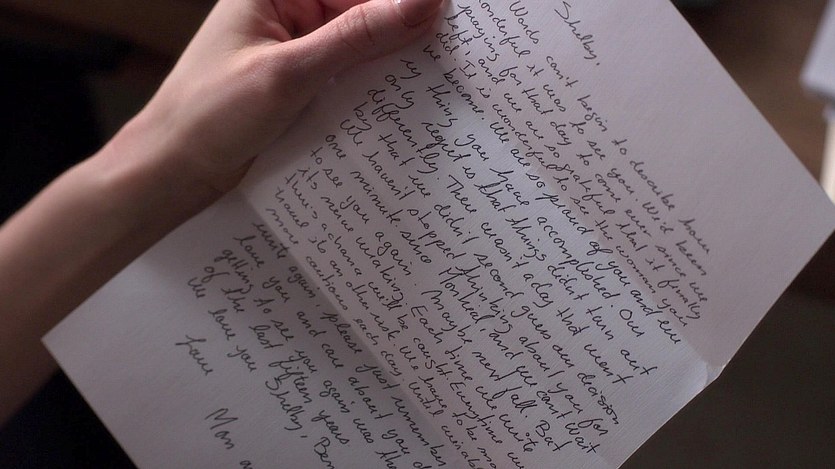 Shelby,
Words can't begin to describe how
wonderful it was to see you. We'd been
praying for that day to come ever since we
left and we are so grateful that it finally
did. It is wonderful to see the woman you
become. We are so proud of you and
ry thing you have accomplished. Our
only regret is that things didn't turn out
differently. There wasn't a day that went
by that we didn't second guess our decision
We haven't stopped thinking about you for
one minute since Montreal and we can't wait
to see you again. Maybe next fall. But
it's nerve wraking. Each time we write
there's a chance we'll be caught. Everytime we
travel is an other risk. We have to be
more cautious each day. Until
until again, please just remember
love you and care about you
getting to see you again was the
of the last fifteen years
We love you Shelby,
Love
Mom